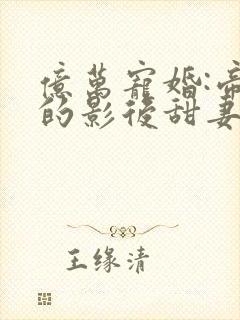 億萬寵婚:帝
的影後甜妻
王缘清